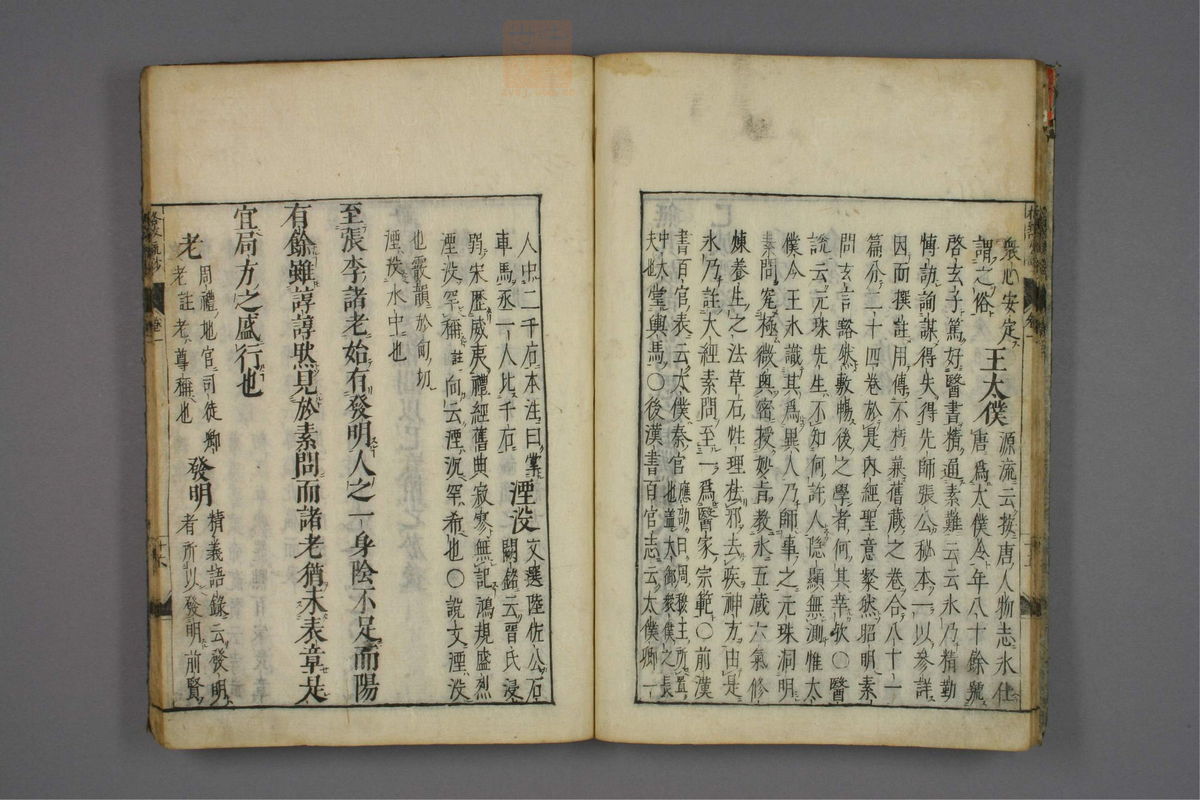 衆心安定
謂之俗 王太僕 源流云按唐人物志氷仕唐爲太僕令年八十餘號
啓玄子篤好醫書精通素難云云氷乃精勤
博訪詢謀得失得先師張公秘本一以參詳
因而撰註用傳不朽兼舊藏之卷合八十一
篇分二十四卷於是內經聖意粲然昭明素
問玄言豁然敷暢後之學者何其幸歟〇醫
說云元珠先生不知何許人隱顯無測惟太
僕令王氷識其爲異人乃師事之元珠洞明
素問究極微奥密授妙旨教氷五藏六氣修
煉養生之法草石性理祛邪去疾神方由是
氷乃註大經素問至一爲醫家宗範〇前漢
書百官表云太僕秦官應劭曰周穆王所置也蓋太御衆僕之長
中大夫也掌輿馬〇後漢書百官志云太僕卿一
人中二千石本注曰掌
車馬丞一人比千石 湮没 文選陸佐公石闕銘云晋氏浸
弱宋歷威夷禮經舊典寂寥無記鴻規盛烈
湮没罕稱註向云湮沉罕希也〇說文湮没
也霰韻於甸切
湮没水中也
至張李諸老始有發明人之一身陰不足而陽
有餘雖諄諄然見於素問而諸老猶未表章是
宜局方之盛行也
老 周禮地官司徒卿老註老尊稱也 發明 精義語錄云發明者所以發明前賢